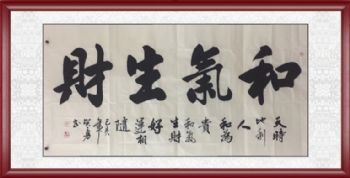 和氣生財
天時
地利
人
和為
貴
和氣
生財
好
運相
隨
己亥